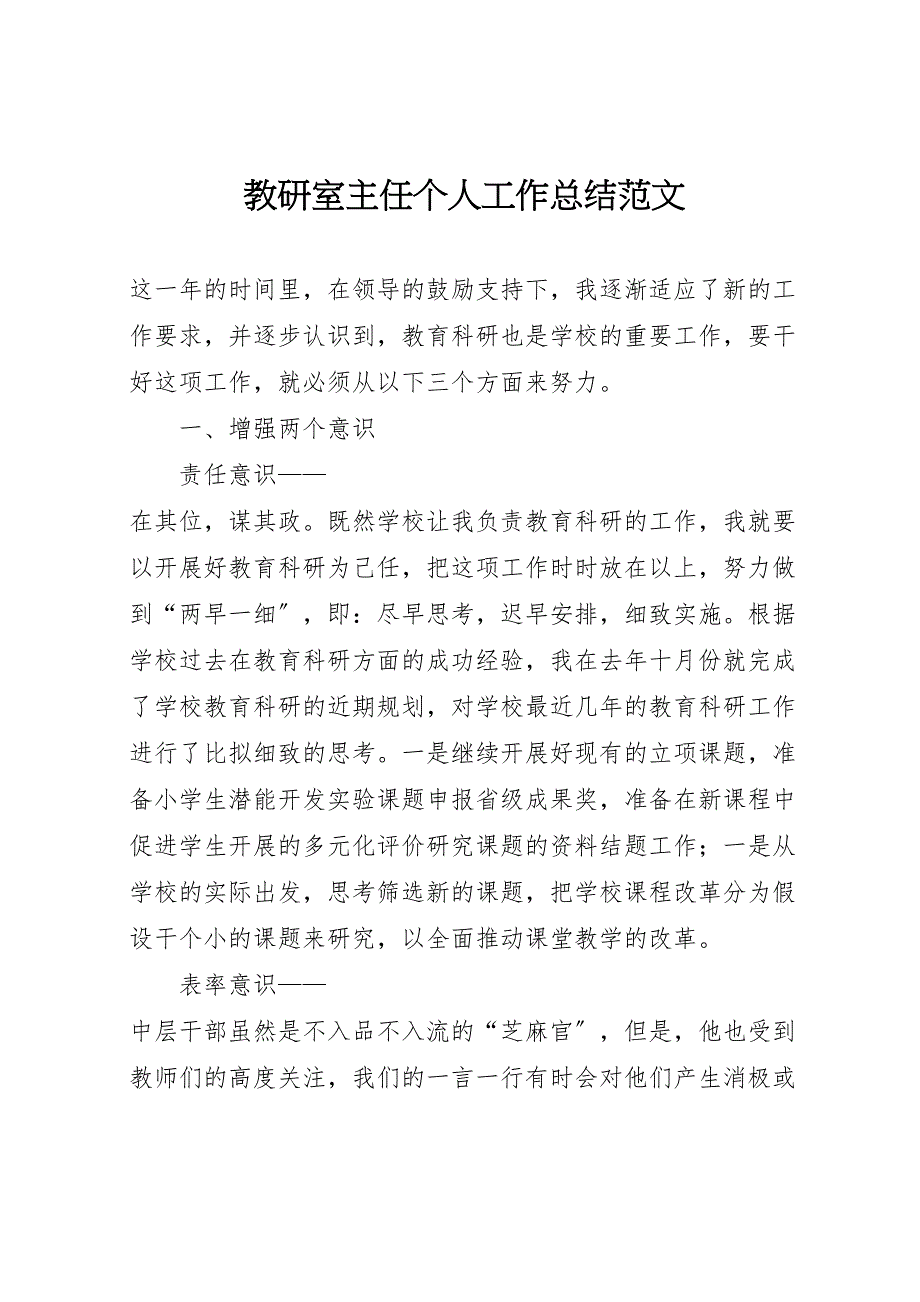 教研室主任个人工作总结范文
这一年的时间里，在领导的鼓励支持下，我逐渐适应了新的工
作要求，并逐步认识到，教育科研也是学校的重要工作，要干
好这项工作，就必须从以下三个方面来努力。
一、增强两个意识
责任意识——
在其位，谋其政。既然学校让我负责教育科研的工作，我就要
以开展好教育科研为己任，把这项工作时时放在以上，努力做
到“两早一细〞，即：尽早思考，迟早安排，细致实施。根据
学校过去在教育科研方面的成功经验，我在去年十月份就完成
了学校教育科研的近期规划，对学校最近几年的教育科研工作
进行了比拟细致的思考。一是继续开展好现有的立项课题，准
备小学生潜能开发实验课题申报省级成果奖，准备在新课程中
促进学生开展的多元化评价研究课题的资料结题工作；一是从
学校的实际出发，思考筛选新的课题，把学校课程改革分为假
设干个小的课题来研究，以全面推动课堂教学的改革。
表率意识——
中层干部虽然是不入品不入流的“芝麻官〞，但是，他也受到
教师们的高度关注，我们的一言一行有时会对他们产生消极或